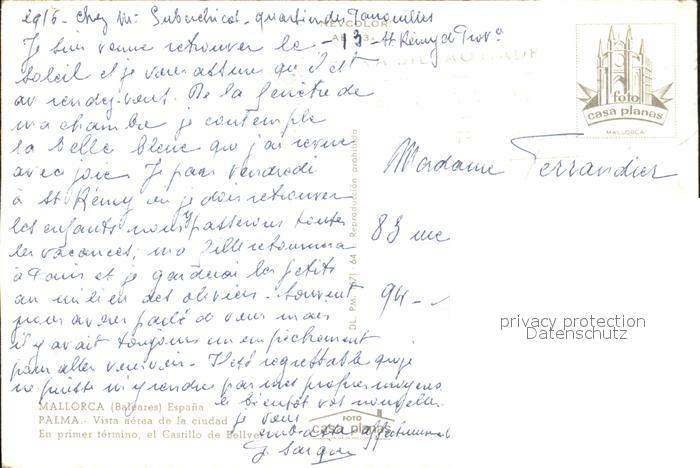 chez Mr
quartier des
Je suis venue retrouver le - 13 - St Rémy de Prov ce
soleil et je vous assure qu'il est
au rendez-vous. De la fenêtre de
ma chambre je contemple
la belle bleue que j'ai revue
avec joie. Je pars vendredi
à St Rémy où je dois retrouver
les enfants nous y passerons toutes
les vacances, ma fille retournera
à Paris et je garderai les petits
au milieu des oliviers. Souvent
nous avons parlé de vous mais
il y avait toujours un empêchement
pour aller vous voir. Il est regrettable que je
ne puisse m'y rendre par mes propres moyens
à bientôt vos nouvelles.
je vous
embrasse affectueusement
Madame Ferrandier
83 rue
94 -
foto
casa planas
MALLORCA
DL. PM. 971 64 Reproducción prohibida
MALLORCA (Baleares) España
PALMA.- Vista aérea de la ciudad
En primer término, el Castillo de Bellver
FOTO
casa planas
privacy protection
Datenschutz